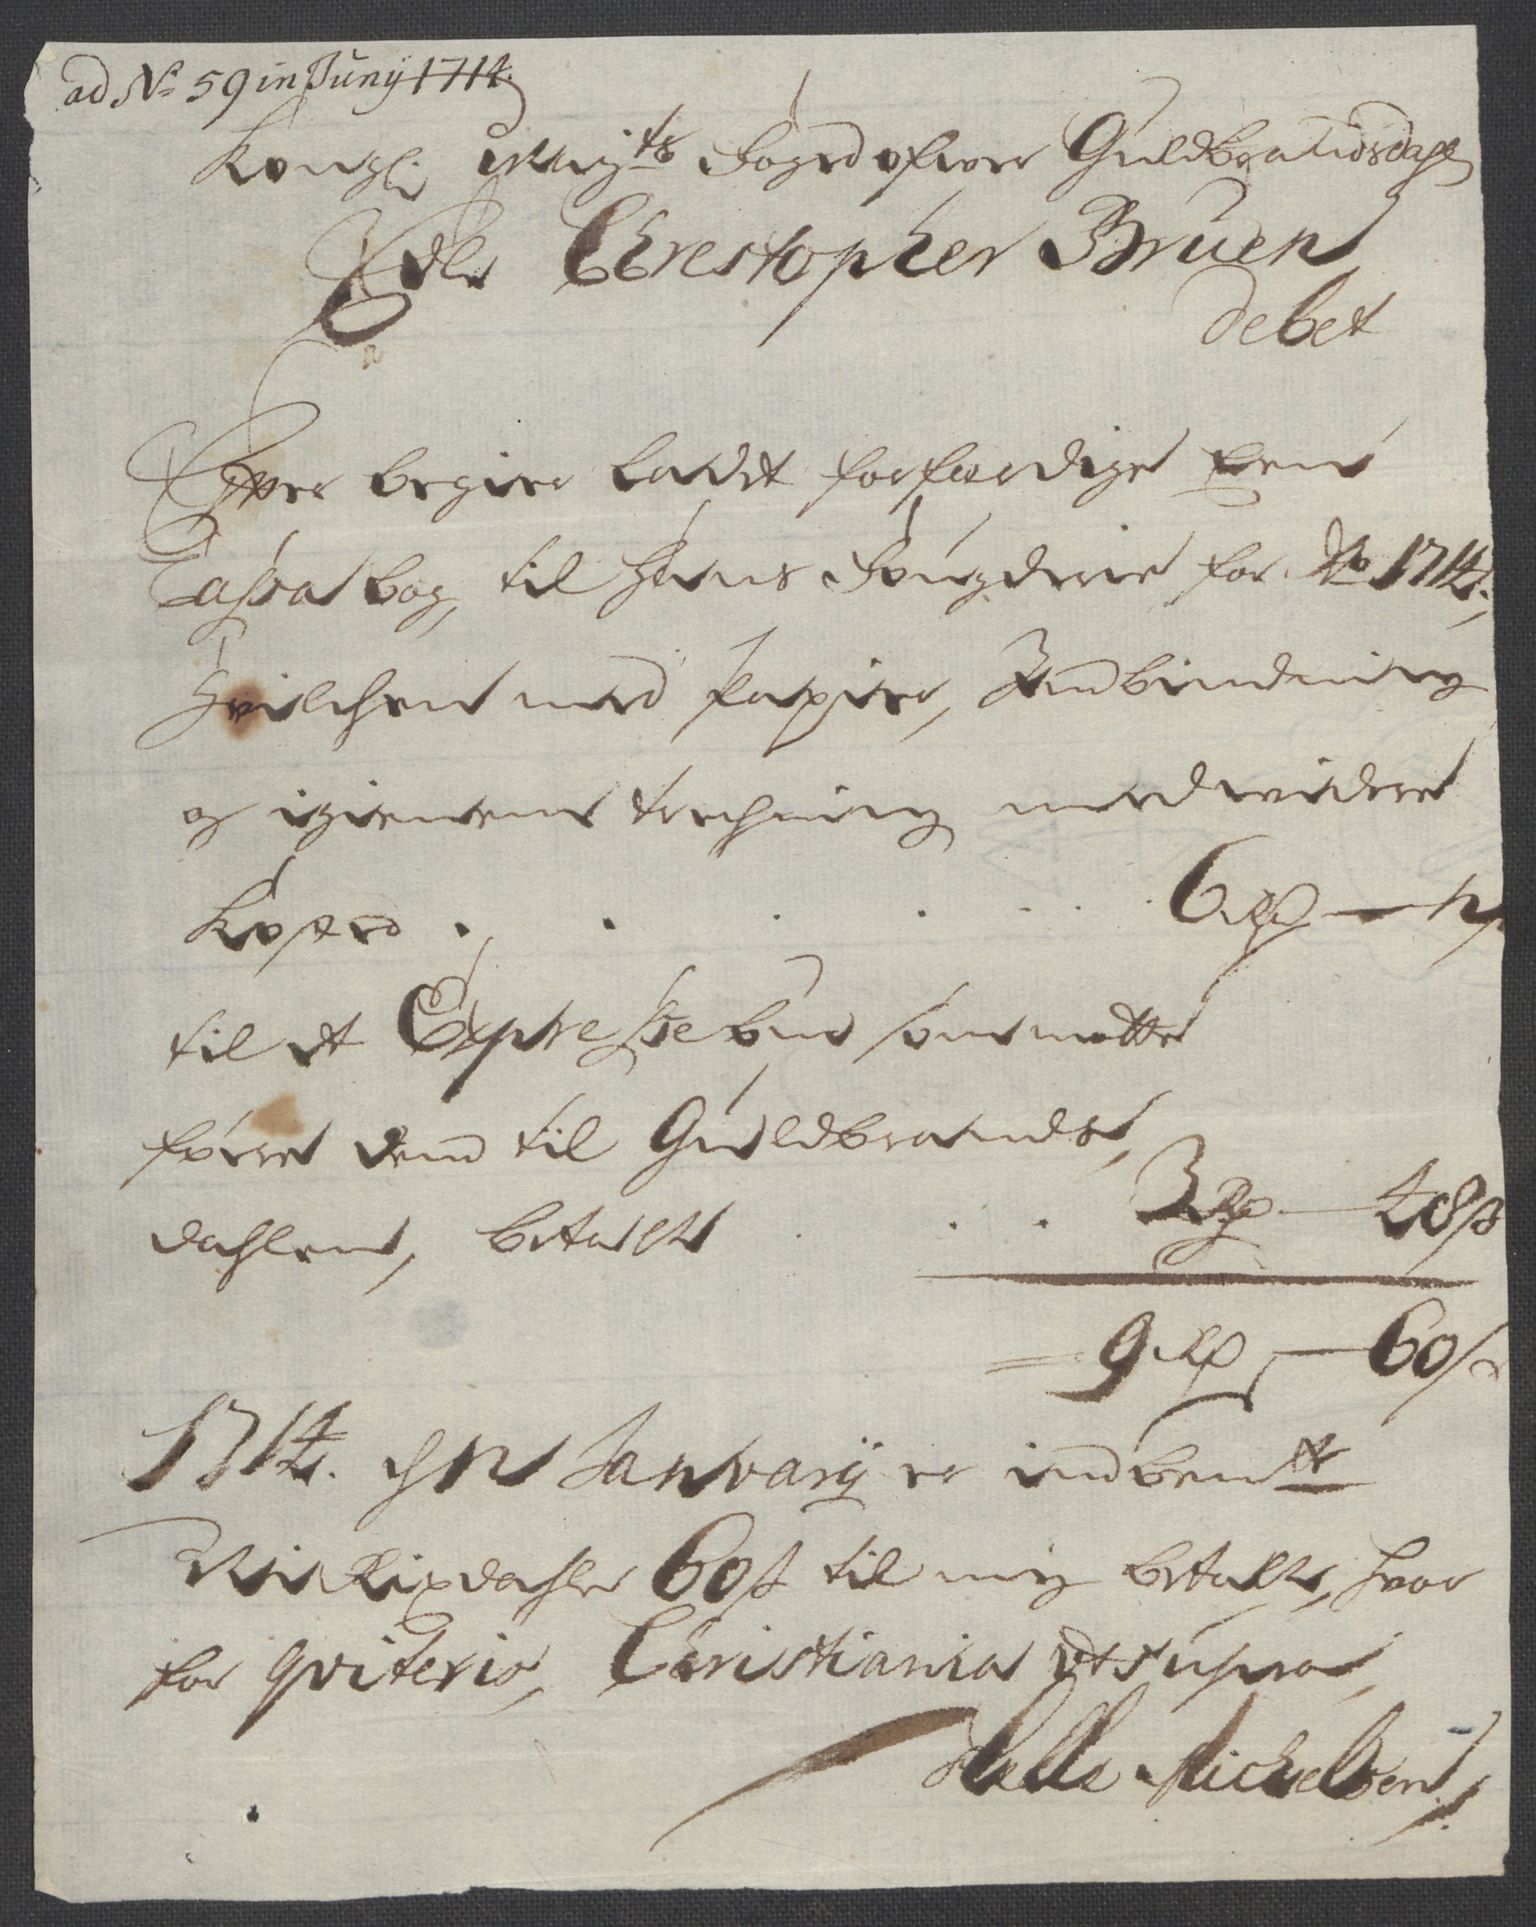 ad No 59 in Junij 1714.
Kongli Mayts Foged ofwer Guldbrandsdahl
Edle Chrestopher Bruen
debet
Efter begier ladet forferdige Een
Cassa bog, til hans Fougderie for Ao 1714,
hvilchen med Papier, Indbinding
og igiennem trechning med widere
Kosted . . . . . . 6 Rdr — 12 s
til et Expresse bud som motte
føre dend til Guldbrands,
dahlen, betalt . . . 3 Rdr — 48 s
= 9 Rdr — 60 s
1714. ch 12 Januarij er indben.te
Ni Rixdahler 60 s til mig betalt, hvor
for qviterer, Christiania ut supra,
Michelsen